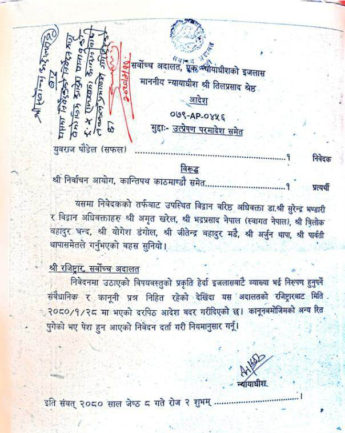 सर्वोच्च अदालत, एक न्यायाधीशको इजलास
माननीय न्यायाधीश श्री तिलप्रसाद श्रेष्ठ
आदेश
०७९-AP-०४५६
मुद्दाः- उत्प्रेषण परमादेश समेत
युवराज पौडेल (सफल) ............................................ १ निवेदक
विरूद्ध
श्री निर्वाचन आयोग, कान्तिपथ काठमाण्डौं समेत............................ १ प्रत्यर्थी
यसमा निवेदकको तर्फबाट उपस्थित विद्वान वरिष्ठ अधिवक्ता डा.श्री सुरेन्द्र भण्डारी
र विद्वान अधिवक्ताहरू श्री अमृत खरेल, श्री भद्रप्रसाद नेपाल (स्वागत नेपाल), श्री त्रिलोक
बहादुर चन्द, श्री योगेश डंगोल, श्री जीतेन्द्र बहादुर मडै, श्री अर्जुन थापा, श्री पार्वती
थापासमेतले गर्नुभएको बहस सुनियो।
श्री रजिष्ट्रार, सर्वोच्च अदालत
निवेदनमा उठाएको विषयवस्तुको प्रकृति हेर्दा इजलासबाटै व्याख्या भई निरुपण हुनुपर्ने
संवैधानिक र कानूनी प्रश्न निहित रहेको देखिंदा यस अदालतको रजिष्ट्रारबाट मिति
२०८०/१/२८ मा भएको दरपिठ आदेश बदर गरीदिएको छ। कानूनबमोजिमको अन्य रित
पुगेको भए पेश हुन आएको निवेदन दर्ता गरी नियमानुसार गर्नू।
न्यायाधीश.
इति संवत् २०८० साल जेष्ठ ८ गते रोज २ शुभम् ............................।